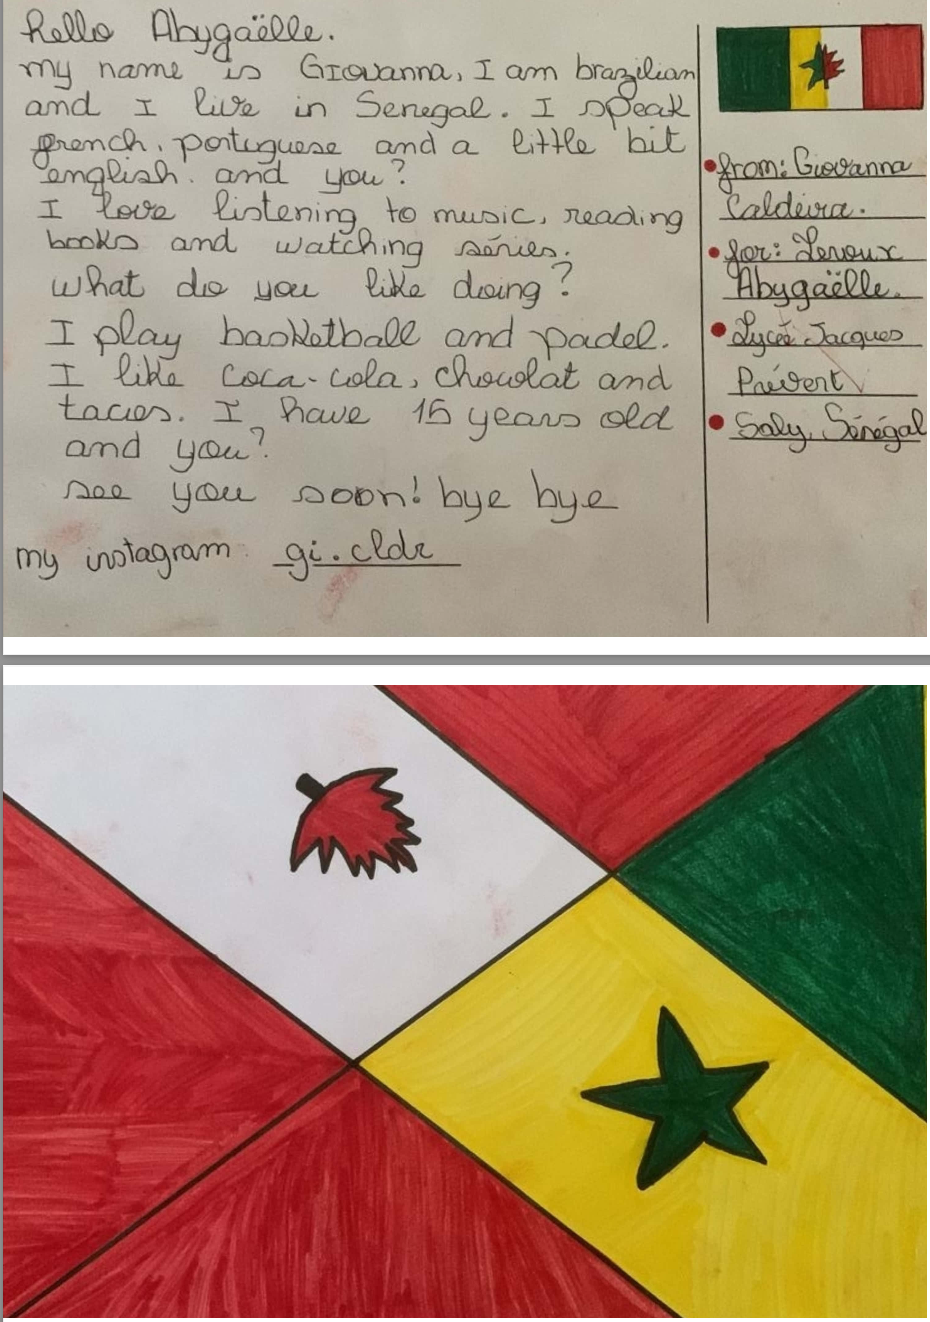 hello Abygaëlle.
my name is Giovanna, I am brazilian
and I live in Senegal. I speak
french, portuguese and a little bit
english. and you?
I love listening to music, reading
books and watching séries.
what do you like doing?
I play basketball and padel.
I like coca-cola, chocolat and
tacos. I have 15 years old
and you?
see you soon! bye bye
my instagram gi.cldr
• from: Giovanna
Caldeira.
• for: Leroux
Abygaëlle.
• Lycée Jacques
Prévert
• Saly, Sénégal